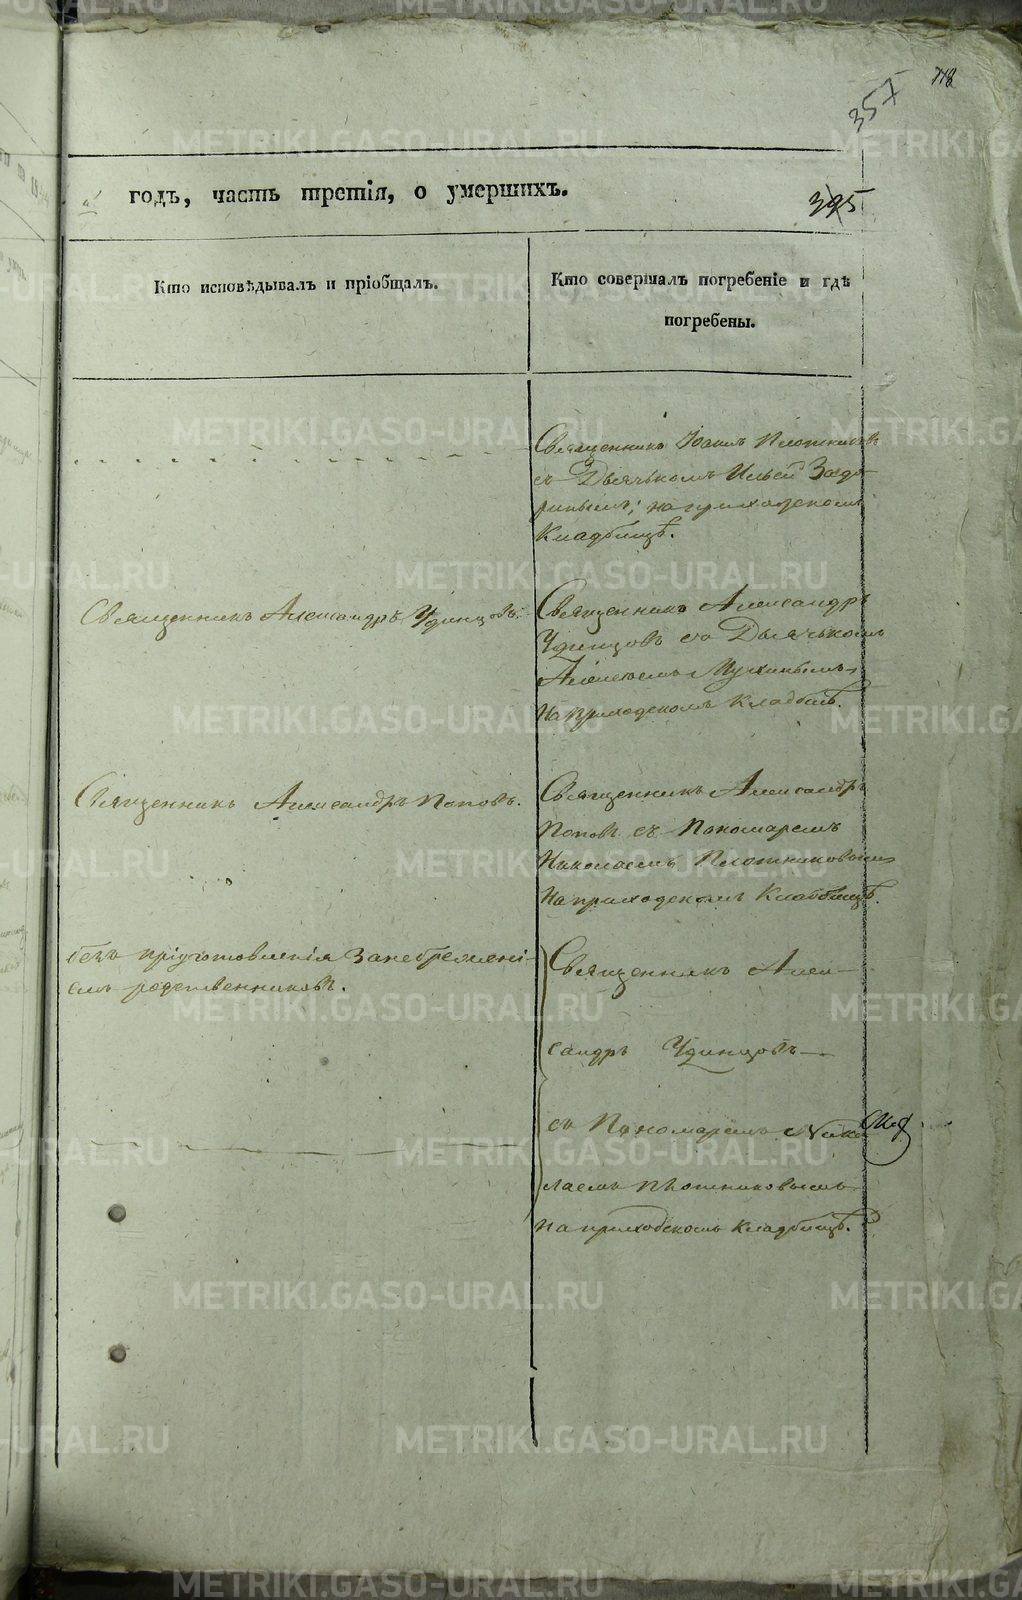 718
357
395
годъ, часть третія, о умершихъ.
Кто исповѣдывалъ и пріобщалъ.
Кто совершалъ погребеніе и гдѣ
погребены.
Священникъ Іоаннъ Плотниковъ
съ Дьячькомъ Ильей Задо-
ринымъ; на приходскомъ
Кладбищѣ.
Священникъ Александръ Удинцовъ.
Священникъ Александръ
Удинцовъ съ Дьячькомъ
Алексѣемъ
на приходскомъ Кладбищѣ.
Священникъ Александръ Поповъ.
Священникъ Александръ
Поповъ съ Пономаремъ
Николаемъ Плотниковымъ
на приходскомъ Кладбищѣ.
безъ пріуготовленія Занебреженi-
емъ родственниковъ.
Священникъ Алек-
сандръ Удинцовъ
съ Пономаремъ Нико
лаемъ Плотниковымъ
на приходскомъ Кладбищѣ.
METRIKI.GASO-URAL.RU